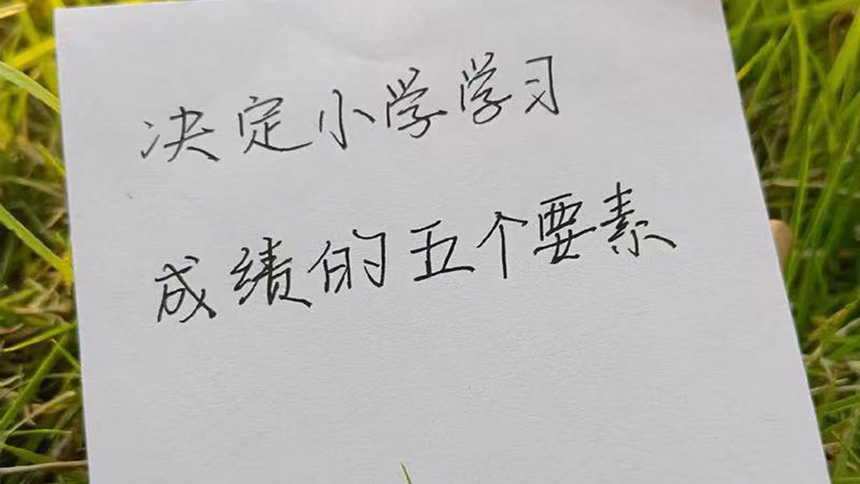 决定小学学习
成绩的五个要素